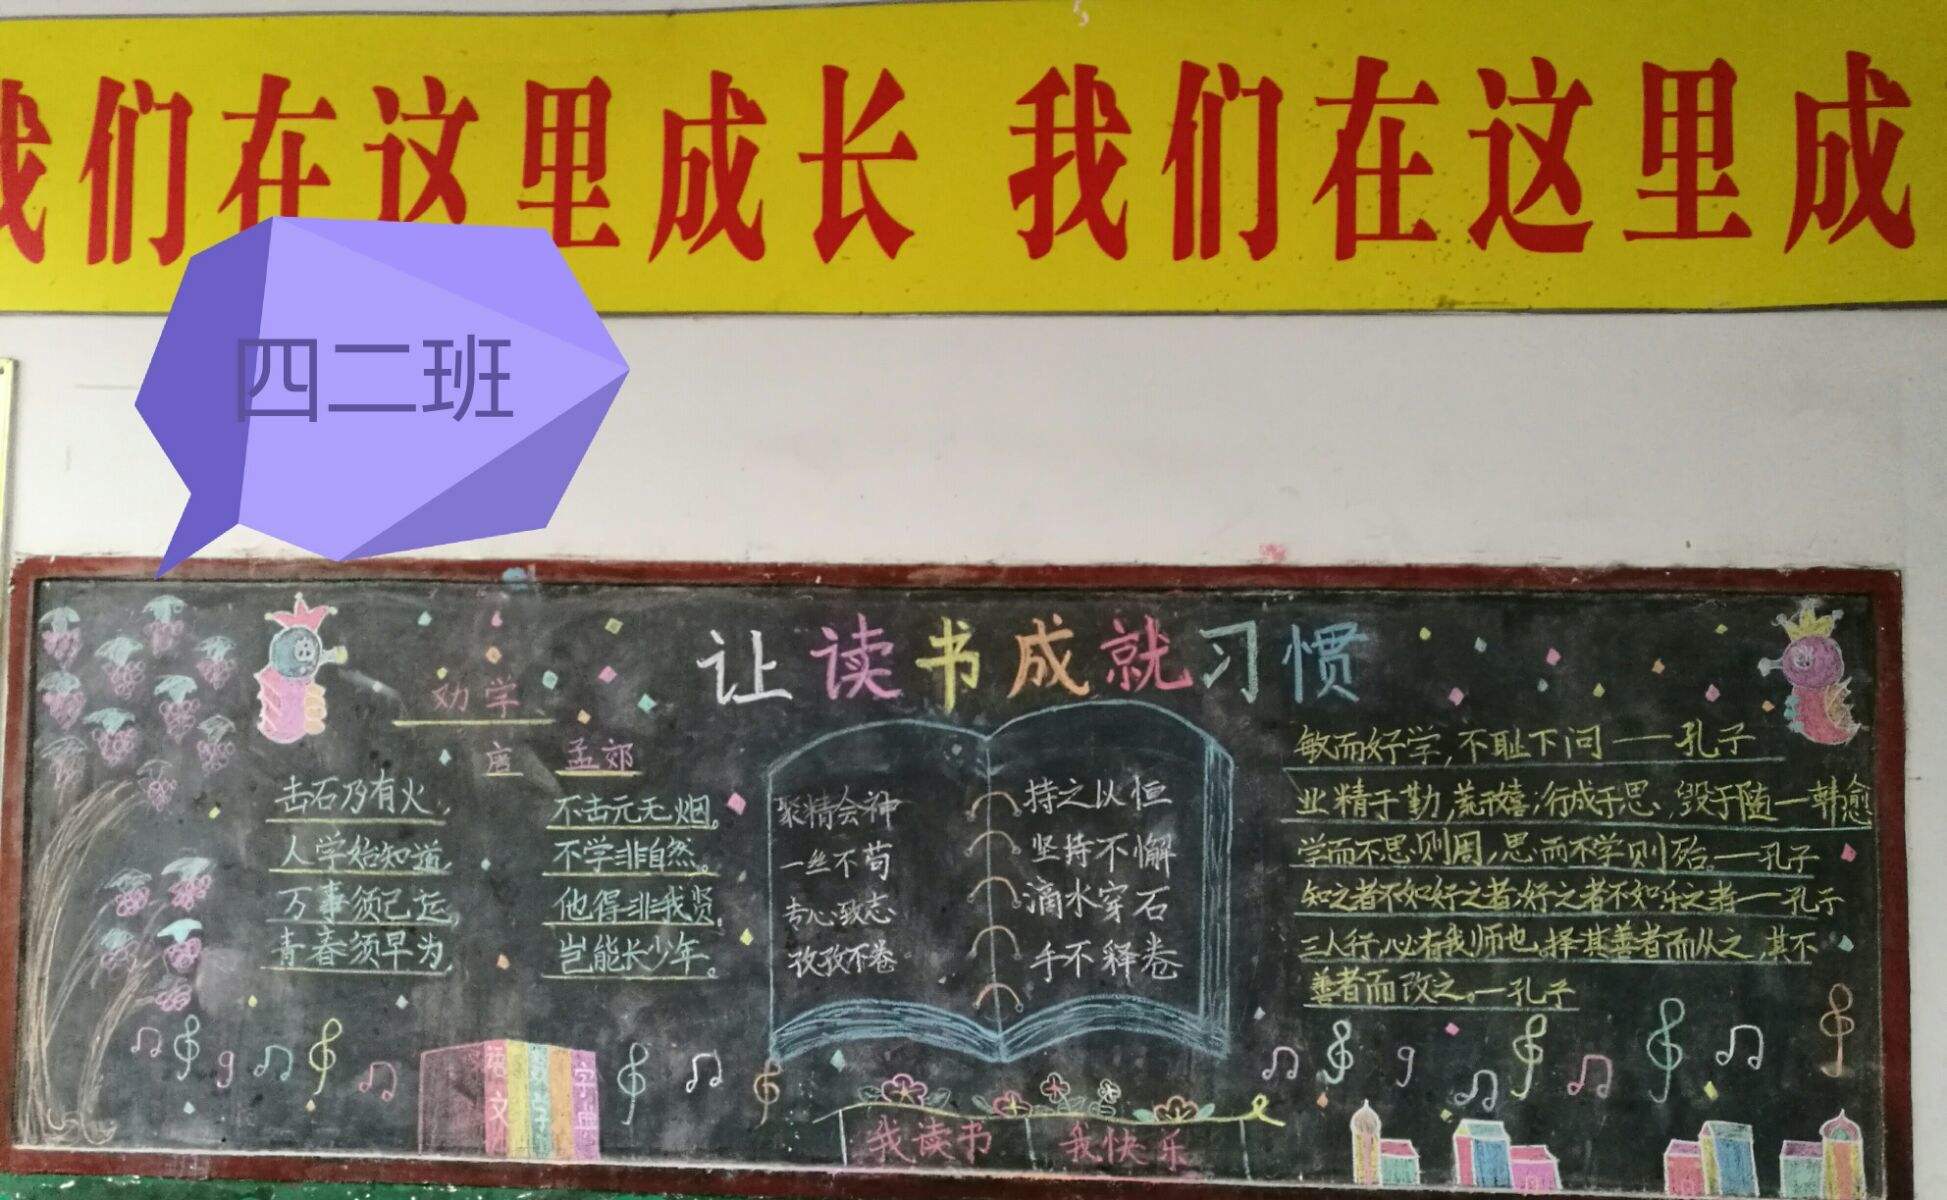 我们在这里成长 我们在这里成
四二班
让读书成就习惯
劝学
唐 孟郊
击石乃有火, 不击元无烟。
人学始知道, 不学非自然。
万事须己运, 他得非我贤。
青春须早为, 岂能长少年。
聚精会神
一丝不苟
专心致志
孜孜不卷
持之以恒
坚持不懈
滴水穿石
手不释卷
敏而好学,不耻下问——孔子
业精于勤,荒于嬉;行成于思,毁于随—韩愈
学而不思则罔,思而不学则殆。—孔子
知之者不如好之者;好之者不如乐之者—孔子
三人行,必有我师也。择其善者而从之,其不
善者而改之。—孔子
语文 数学 字典
我读书 我快乐